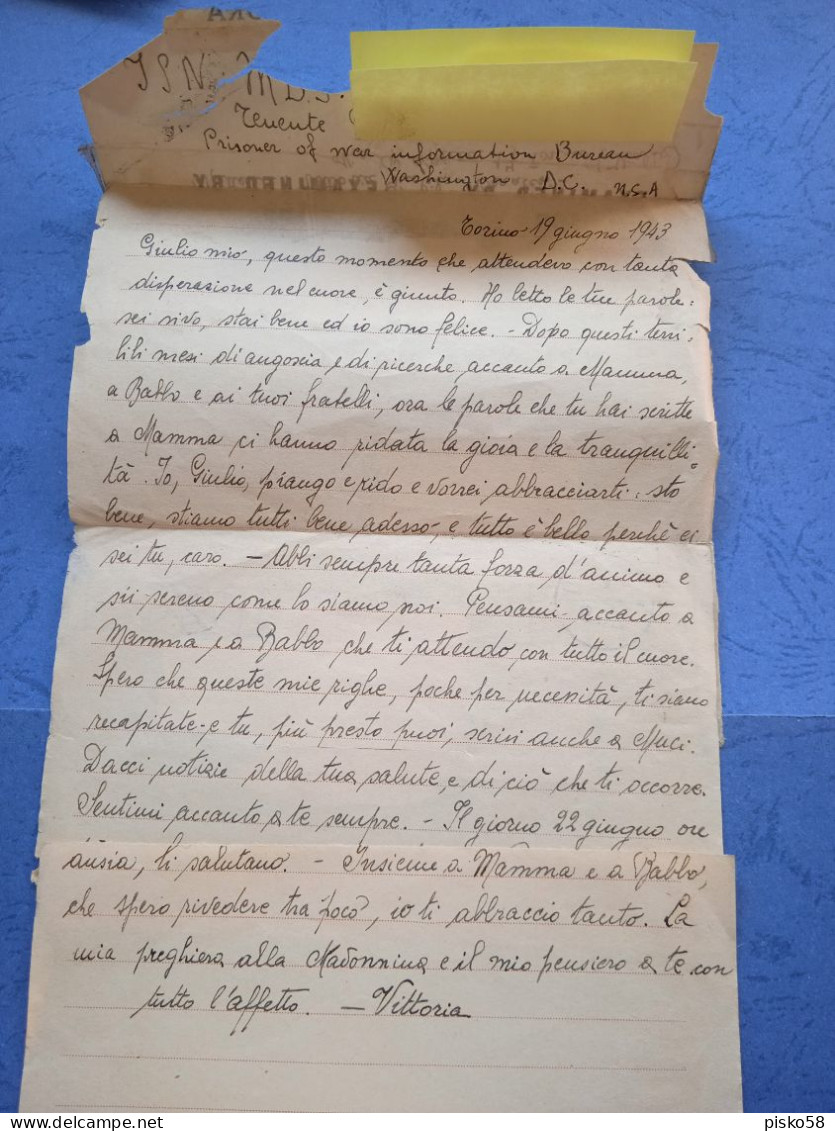 ISN
Tenente
Prisoner of war information Bureau
Washington D.C. U.S.A
Torino - 19 giugno 1943
Giulio mio, questo momento che attendevo con tanta
disperazione nel cuore, è giunto. Ho letto le tue parole:
sei vivo, stai bene ed io sono felice. - Dopo questi terri,
bili mesi di angoscia e di ricerche, accanto a Mamma,
a Babbo e ai tuoi fratelli, ora le parole che tu hai scritte
a Mamma ci hanno ridata la gioia e la tranquilli=
tà. Io, Giulio, piango e rido e vorrei abbracciarti: sto
bene, stiamo tutti bene adesso, e tutto è bello perchè ci
sei tu, caro. - Abbi sempre tanta forza d'animo e
sii sereno come lo siamo noi. Pensami accanto a
Mamma e a Babbo che ti attendo con tutto il cuore.
Spero che queste mie righe, poche per necessità, ti siano
recapitate e tu, più presto puoi, scrivi anche a Muci.
Dacci notizie della tua salute, e di ciò che ti occorre.
Sentimi accanto a te sempre. - Il giorno 22 giugno ore
ansia, ti salutano. - Insieme a Mamma e a Babbo,
che spero rivedere tra poco, io ti abbraccio tanto. La
mia preghiera alla Madonnina e il mio pensiero a te con
tutto l'affetto. - Vittoria
pisko58